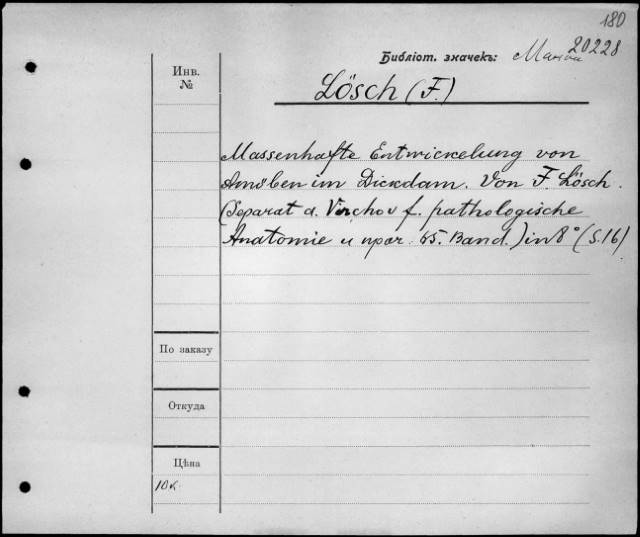 180
Библіот. значекъ: 20228
Инв.
№
Lösch (F.)
Massenhafte Entwickelung von
Amöben im Dickdam. Von F. Lösch.
(Separat a. Virchov f. pathologische
Anatomie u 65. Band.) in 8° (S. 16)
По заказу
Откуда
Цѣна
10к.